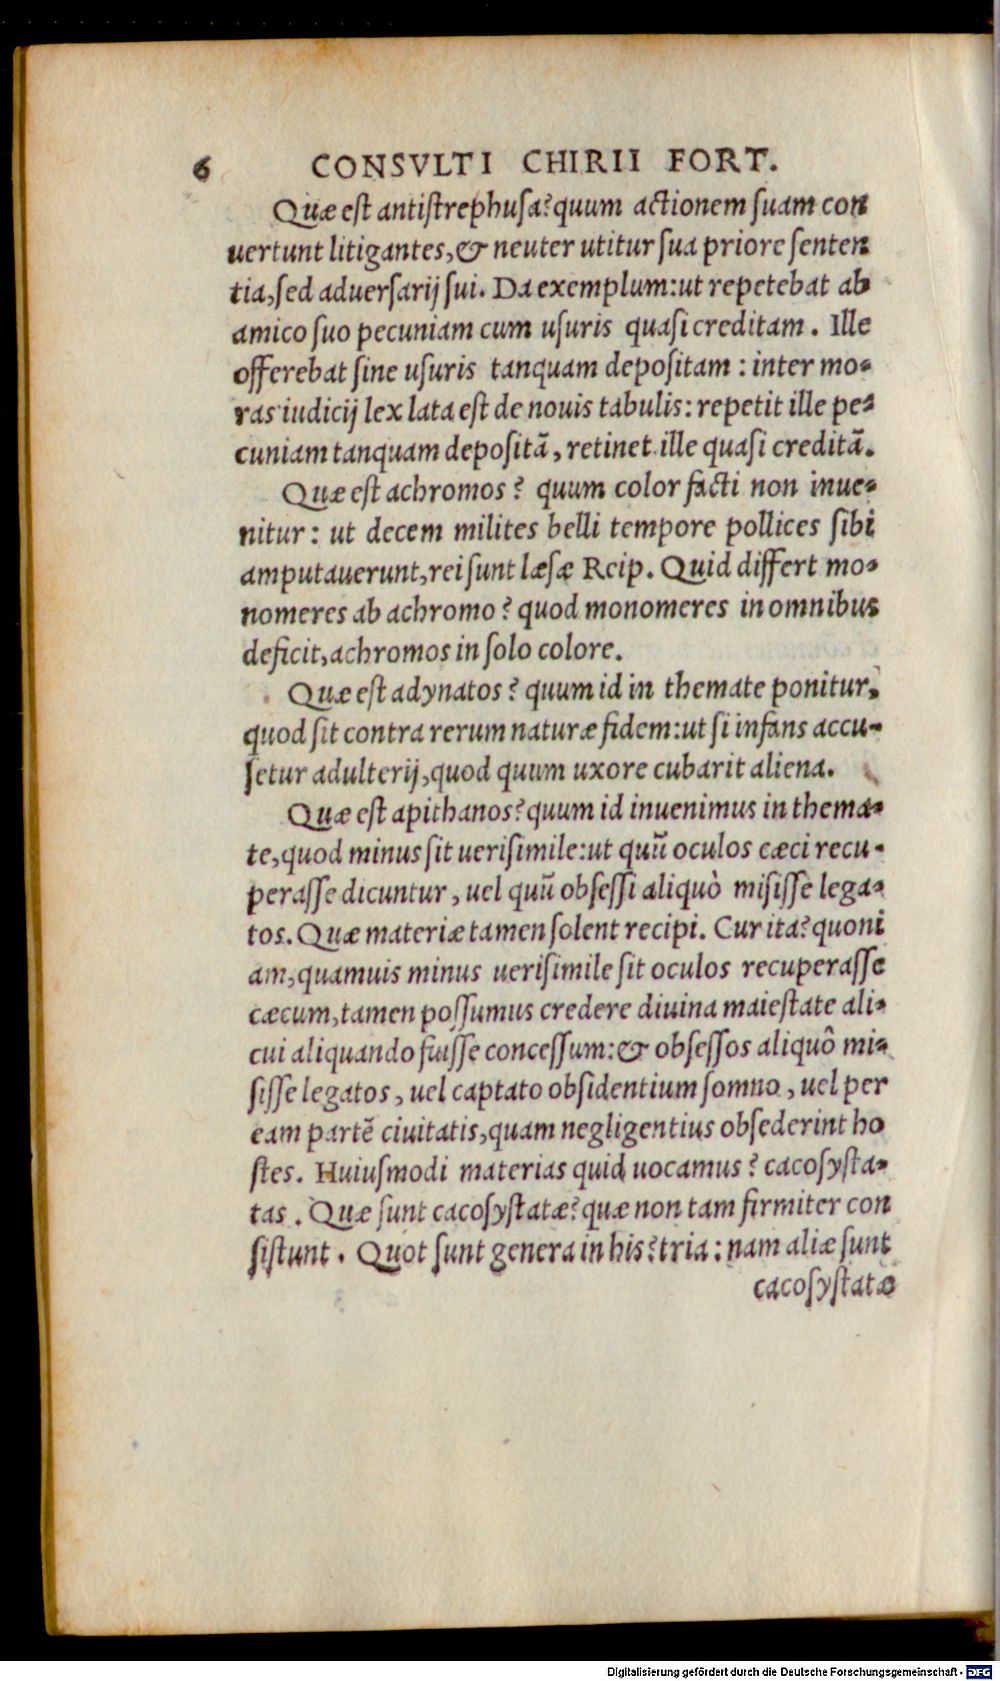 6 CONSVLTI CHIRII FORT.
Quæ est antistrephusa? quum actionem suam con
uertunt litigantes, & neuter utitur sua priore senten
tia, sed aduersarij sui. Da exemplum: ut repetebat ab
amico suo pecuniam cum usuris quasi creditam. Ille
offerebat sine usuris tanquam depositam: inter mo-
ras iudicij lex lata est de nouis tabulis: repetit ille pe-
cuniam tanquam depositā, retinet ille quasi creditā.
Quæ est achromos? quum color facti non inue-
nitur: ut decem milites belli tempore pollices sibi
amputauerunt, rei sunt læsæ Reip. Quid differt mo-
nomeres ab achromo? quod monomeres in omnibus
deficit, achromos in solo colore.
Quæ est adynatos? quum id in themate ponitur,
quod sit contra rerum naturæ fidem: ut si infans accu-
setur adulterij, quod quum uxore cubarit aliena.
Quæ est apithanos? quum id inuenimus in thema-
te, quod minus sit uerisimile: ut quū oculos cæci recu-
perasse dicuntur, uel quū obsessi aliquò misisse lega-
tos. Quæ materiæ tamen solent recipi. Cur ita? quoni
am, quamuis minus uerisimile sit oculos recuperasse
cæcum, tamen possumus credere diuina maiestate ali-
cui aliquando fuisse concessum: & obsessos aliquô mi-
sisse legatos, uel captato obsidentium somno, uel per
eam partē ciuitatis, quam negligentius obsederint ho
stes. Huiusmodi materias quid uocamus? cacosysta-
tas. Quæ sunt cacosystatæ? quæ non tam firmiter con
sistunt. Quot sunt genera in his? tria: nam aliæ sunt
cacosystatæ
Digitalisierung gefördert durch die Deutsche Forschungsgemeinschaft - DFG